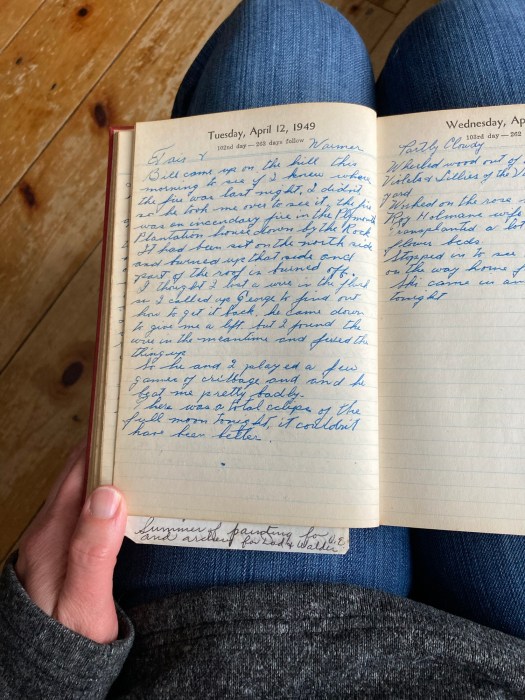 Tuesday, April 12, 1949
102nd day — 263 days follow
Fair & Warmer
Bill came up on the hill this
morning to see if I knew where
the fire was last night, I didn't
so he took me over to see it, the fire
was an incendary fire in the Plymouth
Plantation house down by the Rock
It had been set on the north side
and burned up that side and
part of the roof is burned off.
I thought I lost a wire in the
so I called up George to find out
how to get it back, he came down
to give me a lift but I found the
wire in the meantime and fixed the
thing up
So he and I played a few
games of cribbage and and he
beat me pretty badly.
There was a total eclipse of the
full moon tonight, it couldn't
have been better.
Summer of painting for
and archery for Dad & Walder
Wednesday, Ap
103rd day —
Partly Cloudy
Wheeled wood out of
Violets & Lillies of the V
yard
Worked on the rose
Roy Holmans wife
transplanted a lot
flower beds.
Stopped in to see
on the way home
She came in an
tonight